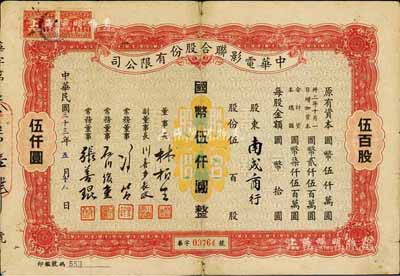 中華電影聯合股份有限公司
原有資本 國幣伍仟萬圓
卅二年十月一日增加資本 國幣貳仟伍百萬圓
合計資本總額 國幣柒仟伍百萬圓
每股金額 國幣拾圓
股東 南成商行
股份 伍百股
國幣伍仟圓整
董事長 林柏生
副董事長 川喜多長政
常務董事 馮節
常務董事 石川俊重
常務董事 張善琨
中華民國三十三年五月 日
伍百股
伍仟圓
華字 03764 號
印鑑號碼 553